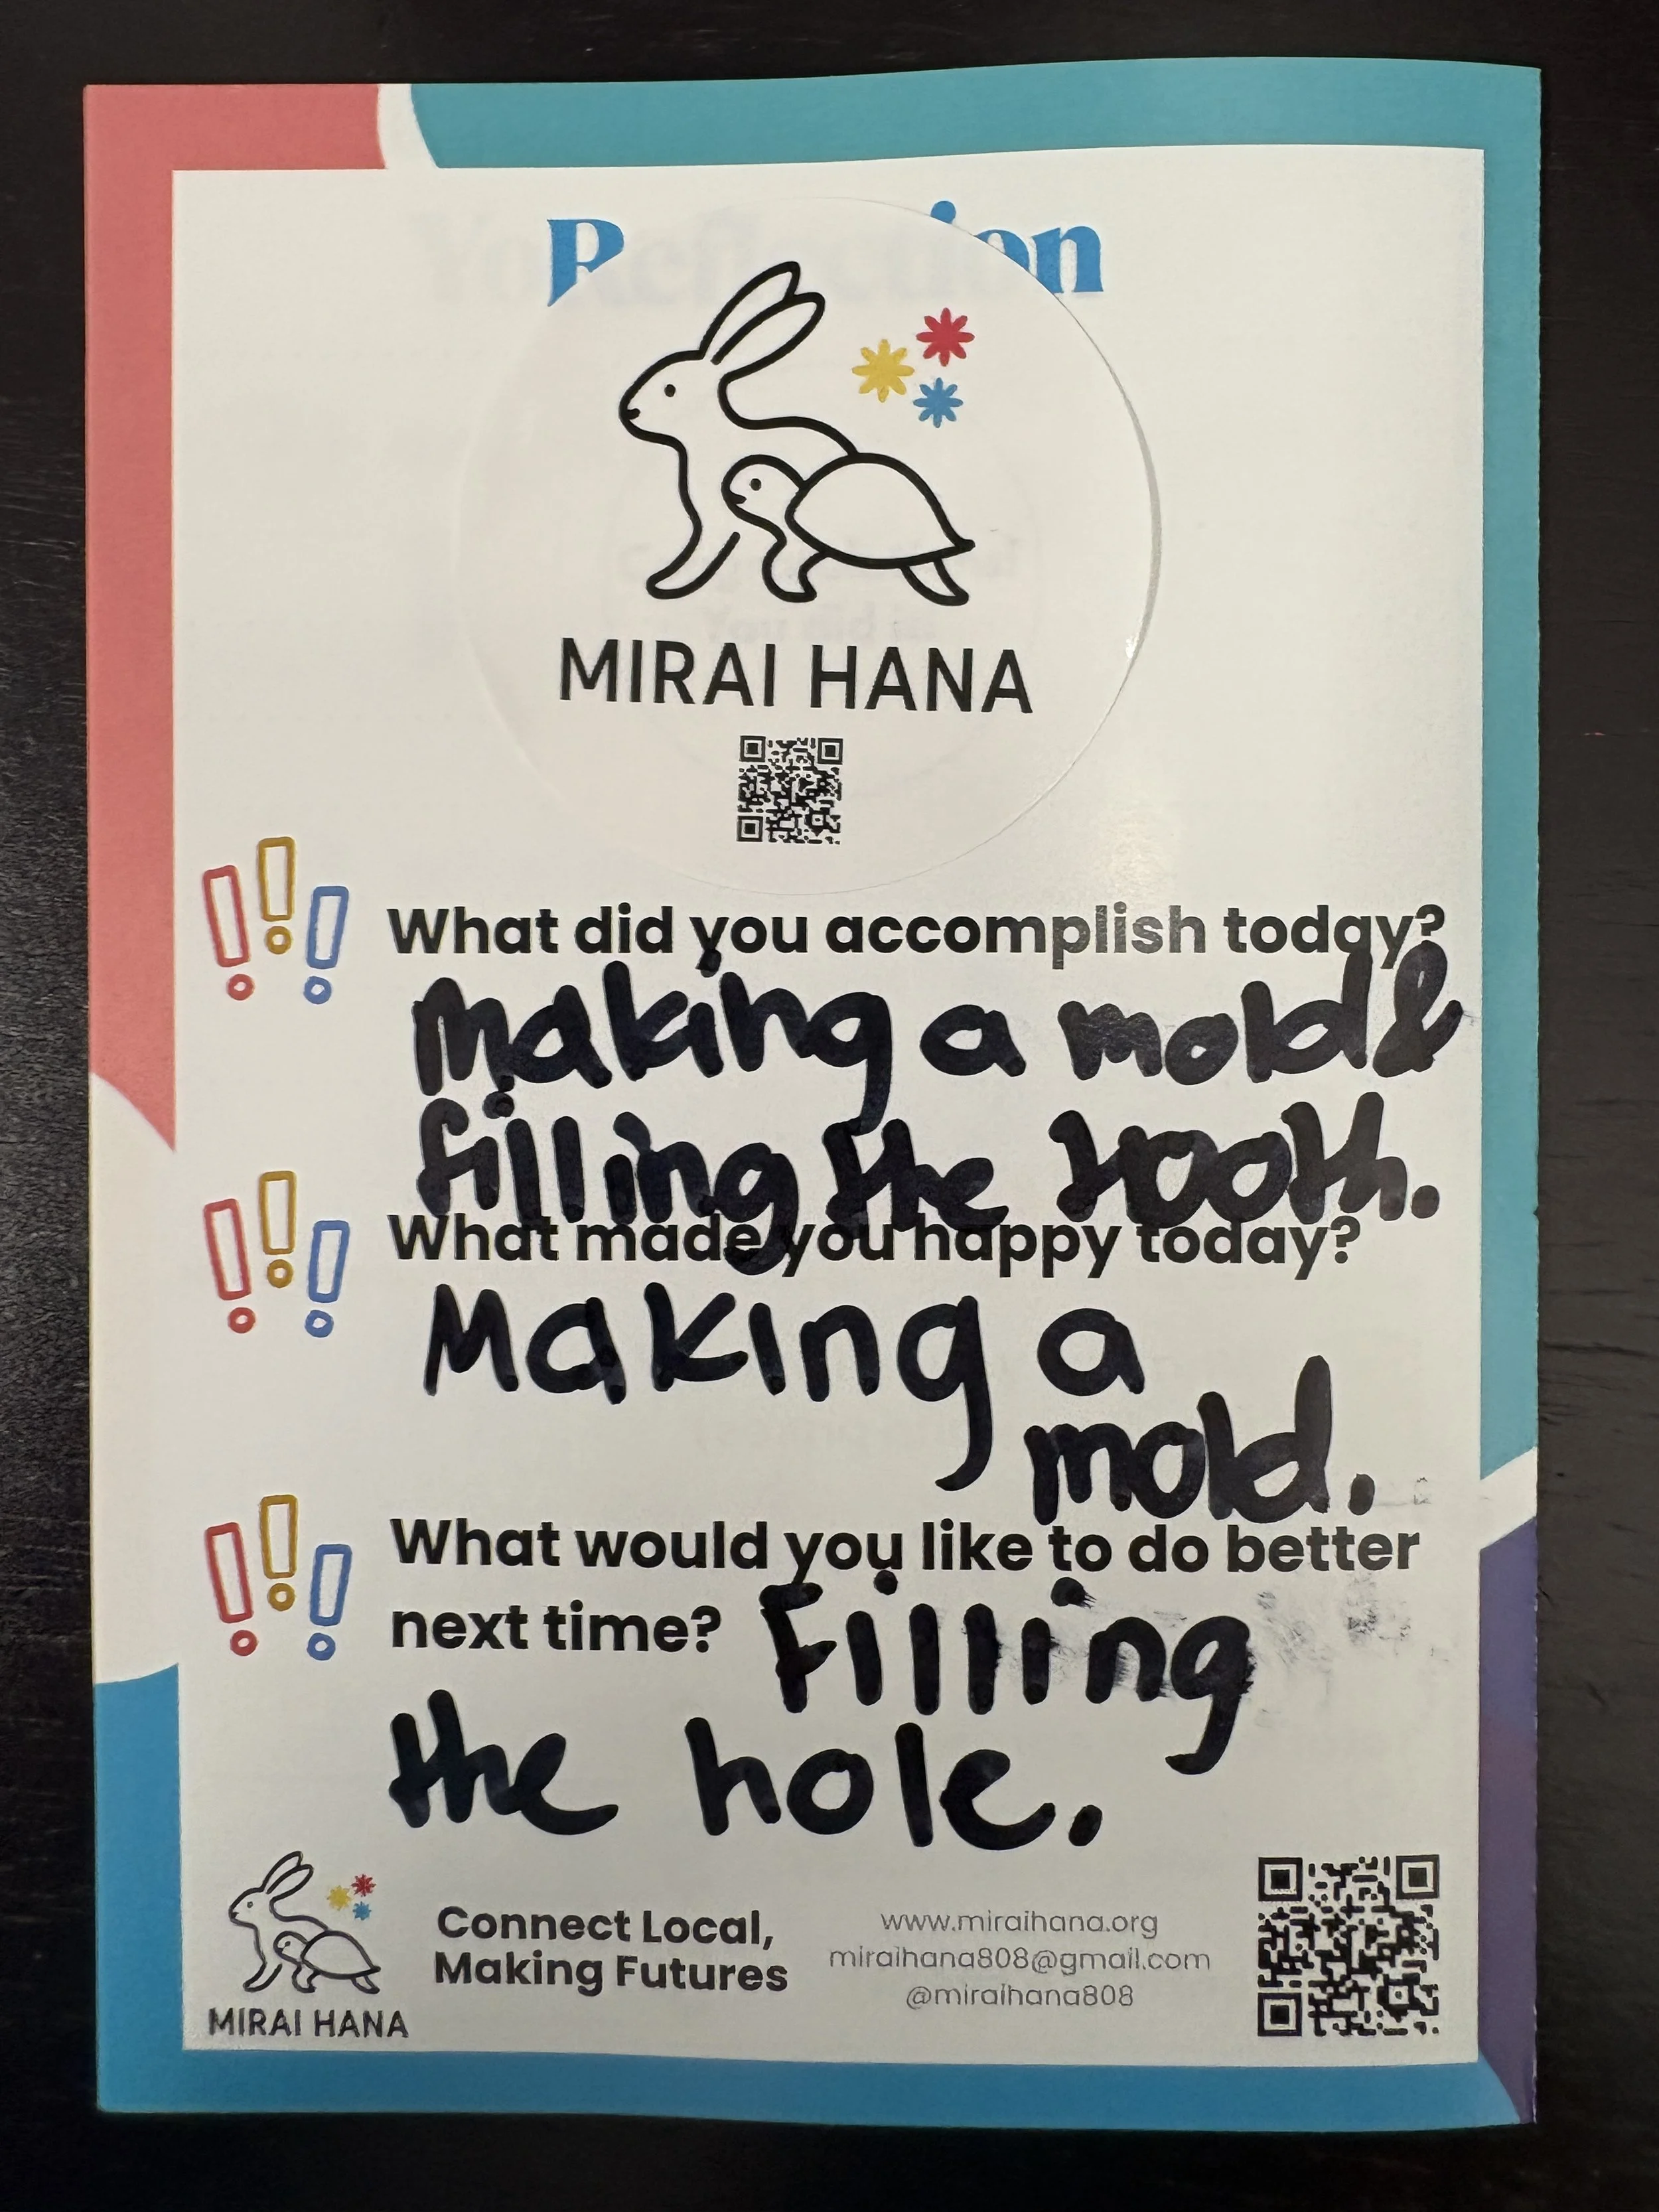 MIRAI HANA
What did you accomplish today?
Making a mold &
filling the tooth.
What made you happy today?
Making a
mold.
What would you like to do better
next time? Filling
the hole.
MIRAI HANA
Connect Local,
Making Futures
www.miraihana.org
miraihana808@gmail.com
@miraihana808